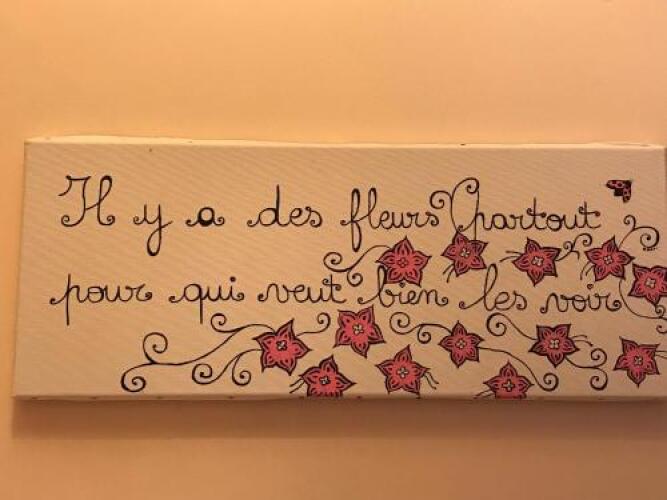 Il y a des fleurs partout
pour qui veut bien les voir